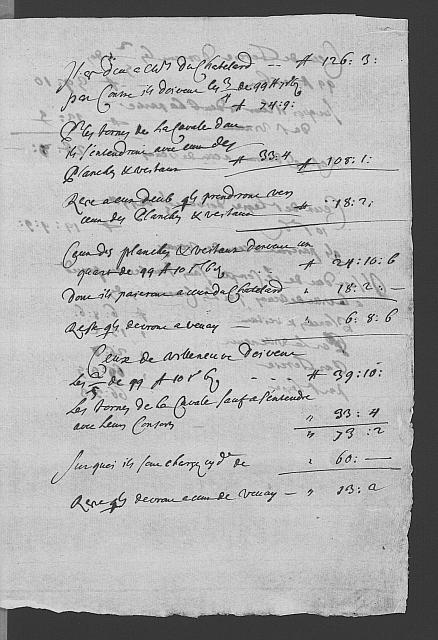 Il est deu a ceux du Chatelard -- ff 126: 3:
par Contre ils doivent les 3/4 de 99 ff
ff 74: 9:
Plus les bornes de la Cavale dont
ils s'entendront avec ceux des
Planches & veitaux ff 33: 4 ff 108: 1:
Reste a eux deub qls prendront vers
ceux des Planches & veitaux " 18: 2:
Ceux des planches & veitaux doivent un
quart de 99 ff 10 s 6 ff 24: 10: 6
dont ils paieront a ceux du Chatelard " 18: 2: —
Reste qls devront a vevay — " 6: 8: 6
Ceux de villeneuve doivent
les 2/5 de 99 ff 10 s 6 - - - ff 39: 10:
les bornes de la Cavale sauf a s'entendre
avec leurs Consorts " 33: 4
" 73: 2
sur quoi ils sont charges de " 60: —
Reste qls devront a ceux de vevay — " 13: 2